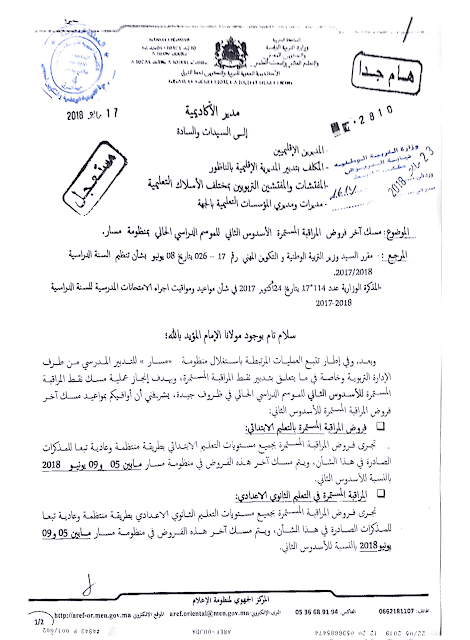 المملكة المغربية
وزارة التربية الوطنية
هـام جدا
17 ماي 2018
مدير الأكاديمية
إلى السيدات والسادة
2810
- المديرين الإقليميين
- المكلف بتدبير المديرية الإقليمية بالناظور
- المفتشات والمفتشين التربويين بمختلف الأسلاك التعليمية
- مديرات ومديري المؤسسات التعليمية بالجهة
مستعجل
23 ماي 2018
الموضوع: مسك آخر فروض المراقبة المستمرة الأسدوس الثاني للموسم الدراسي الحالي بمنظومة مسار.
المرجع: - مقرر السيد وزير التربية الوطنية و التكوين المهني رقم 17 – 026 بتاريخ 08 يونيو بشأن تنظيم السنة الدراسية
2017/2018.
-المذكرة الوزارية عدد 114*17 بتاريخ 24أكتوبر 2017 في شأن مواعيد ومواقيت اجراء الامتحانات المدرسية للسنة الدراسية
2017-2018
سلام تام بوجود مولانا الإمام المؤيد بالله؛
وبعد، وفي إطار تتبع العمليات المرتبطة باستغلال منظومة «مسار» للتدبير المدرسي من طرف
الإدارة التربوية وخاصة في ما يتعلق بتدبير نقط المراقبة المستمرة، وبهدف إنجاز عملية مسك نقط المراقبة
المستمرة للأسدوس الثاني للموسم الدراسي الحالي في ظروف جيدة، يشرفني أن أوافيكم بمواعيد مسك آخر
فروض المراقبة المستمرة للأسدوس الثاني:
فروض المراقبة المستمرة بالتعليم الابتدائي:
تجرى فروض المراقبة المستمرة بجميع مستويات التعليم الابتدائي بطريقة منتظمة وعادية تبعا للمذكرات
الصادرة في هذا الشأن، ويتم مسك آخر هذه الفروض في منظومة مسار مابين 05 و09 يونيو 2018
بالنسبة للأسدوس الثاني.
المراقبة المستمرة في التعليم الثانوي الاعدادي:
تجرى فروض المراقبة المستمرة بجميع مستويات التعليم الثانوي الاعدادي بطريقة منتظمة وعادية تبعا
للمذكرات الصادرة في هذا الشأن، ويتم مسك آخر هذه الفروض في منظومة مسار مابين 05 و09
يونيو2018 بالنسبة للأسدوس الثاني.
المركز الجهوي لمنظومة الإعلام
الهاتف: 0662181107 الفاكس: 05 36 68 91 94 البريد الالكتروني aref.oriental@men.gov.ma الموقع الالكتروني http://aref-or.men.gov.ma
1/2
AREF-OUJDA